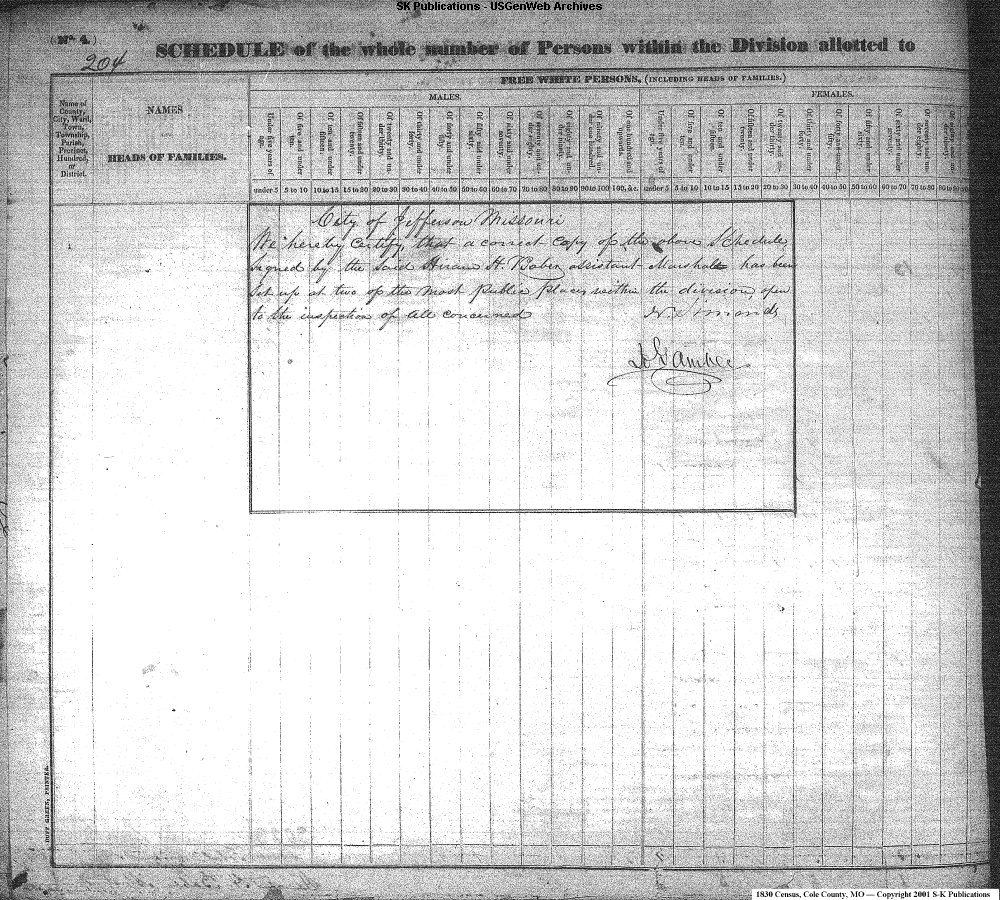 SK Publications - USGenWeb Archives
(No. 4.)
204
SCHEDULE of the whole number of Persons within the Division allotted to
FREE WHITE PERSONS, (INCLUDING HEADS OF FAMILIES.)
MALES. FEMALES.
Name of County, City, Ward, Town, Township, Parish, Precinct, Hundred, or District.
NAMES
HEADS OF FAMILIES.
Under five years of age. Of five and under ten. Of ten and under fifteen. Of fifteen and under twenty. Of twenty and under thirty. Of thirty and under forty. Of forty and under fifty. Of fifty and under sixty. Of sixty and under seventy. Of seventy and under eighty. Of eighty and under ninety. Of ninety and under one hundred. Of one hundred and upwards. Under five years of age. Of five and under ten. Of ten and under fifteen. Of fifteen and under twenty. Of twenty and under thirty. Of thirty and under forty. Of forty and under fifty. Of fifty and under sixty. Of sixty and under seventy. Of seventy and under eighty.
under 5 5 to 10 10 to 15 15 to 20 20 to 30 30 to 40 40 to 50 50 to 60 60 to 70 70 to 80 80 to 90 90 to 100 100, &c. under 5 5 to 10 10 to 15 15 to 20 20 to 30 30 to 40 40 to 50 50 to 60 60 to 70 70 to 80 80 to 90
City of Jefferson Missouri
We hereby certify, that a correct copy of the above Schedule
signed by the said Hiram H. Baber assistant Marshall has been
set up at two of the most public places within the division, open
to the inspection of all concerned
DUFF GREEN, PRINTER.
1830 Census, Cole County, MO — Copyright 2001 S-K Publications